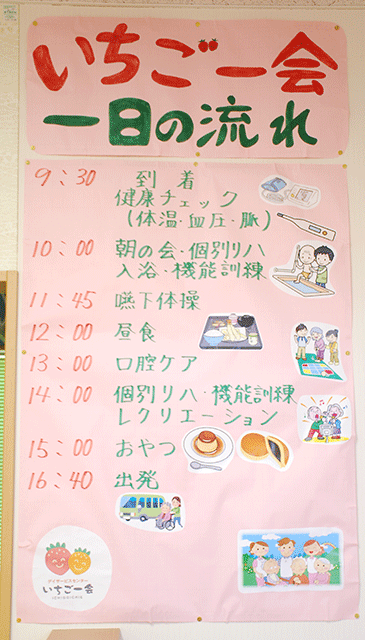 いちご一会
一日の流れ
9:30 到着
健康チェック
(体温・血圧・脈)
10:00 朝の会・個別リハ
入浴・機能訓練
11:45 嚥下体操
12:00 昼食
13:00 口腔ケア
14:00 個別リハ・機能訓練
レクリエーション
15:00 おやつ
16:40 出発
デイサービスセンター
いちご一会
ICHIGOICHIE